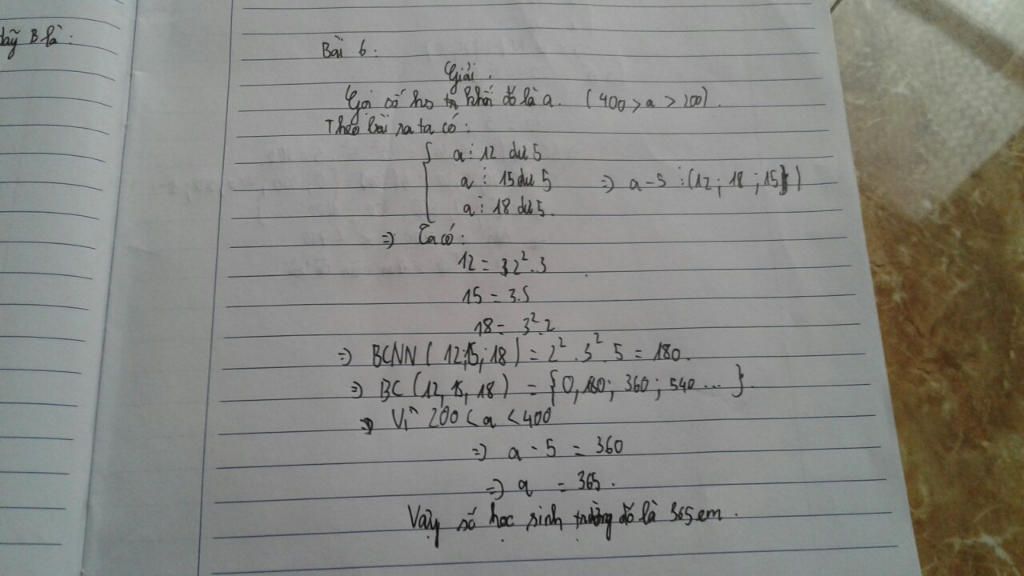 dãy B là:
Bài 6:
Giải.
Gọi số hs khối đó là a. (400 > a > 200).
Theo bài ra ta có:
a : 12 dư 5
a : 15 dư 5 => a - 5 ⋮ (12; 18; 15)
a : 18 dư 5.
=> Ta có:
12 = 2².3
15 = 3.5
18 = 3².2
=> BCNN (12;15;18) = 2².3².5 = 180.
=> BC (12, 15, 18) = {0, 180; 360; 540 ... }.
=> Vì 200 < a < 400
=> a - 5 = 360
=> a = 365.
Vậy số học sinh trường đó là 365 em.